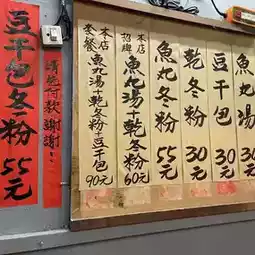 豆干包冬粉 55元
請先付款 謝謝!
本店套餐 魚丸湯+乾冬粉+豆干包 90元
本店招牌 魚丸湯+乾冬粉 60元
魚丸冬粉 55元
乾冬粉 30元
豆干包 30元
魚丸湯 30元